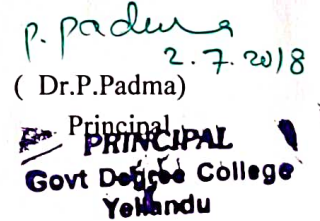 P. Padma
2.7.2018
( Dr.P.Padma)
Principal
PRINCIPAL
Govt Degree College
Yellandu